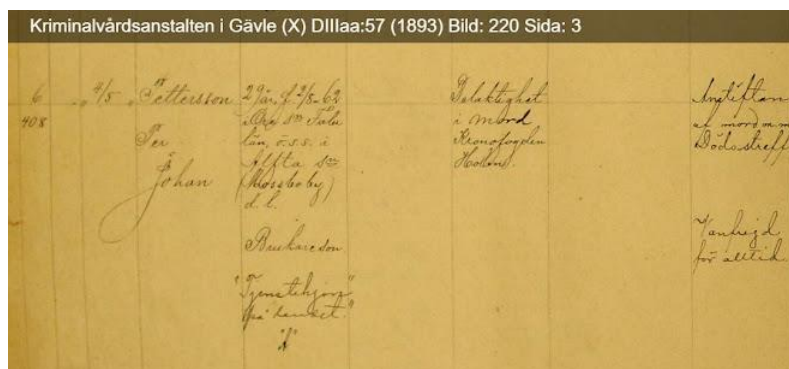 Kriminalvårdsanstalten i Gävle (X) DIIIaa:57 (1893) Bild: 220 Sida: 3
6 4/5 Pettersson
408 Per
Johan
29 år, f. 2/8-62
i Ore sn Falu
län, ö.s.s. i
Alfta sn
(Mossboby)
d. l.
Brukareson
"Tjenstehjon
på landet."
Delaktighet
i mord
Kronofogden
Holm.
Anstiftan
af mord m.m
Dödsstraff
Vanfrejd
för alltid.